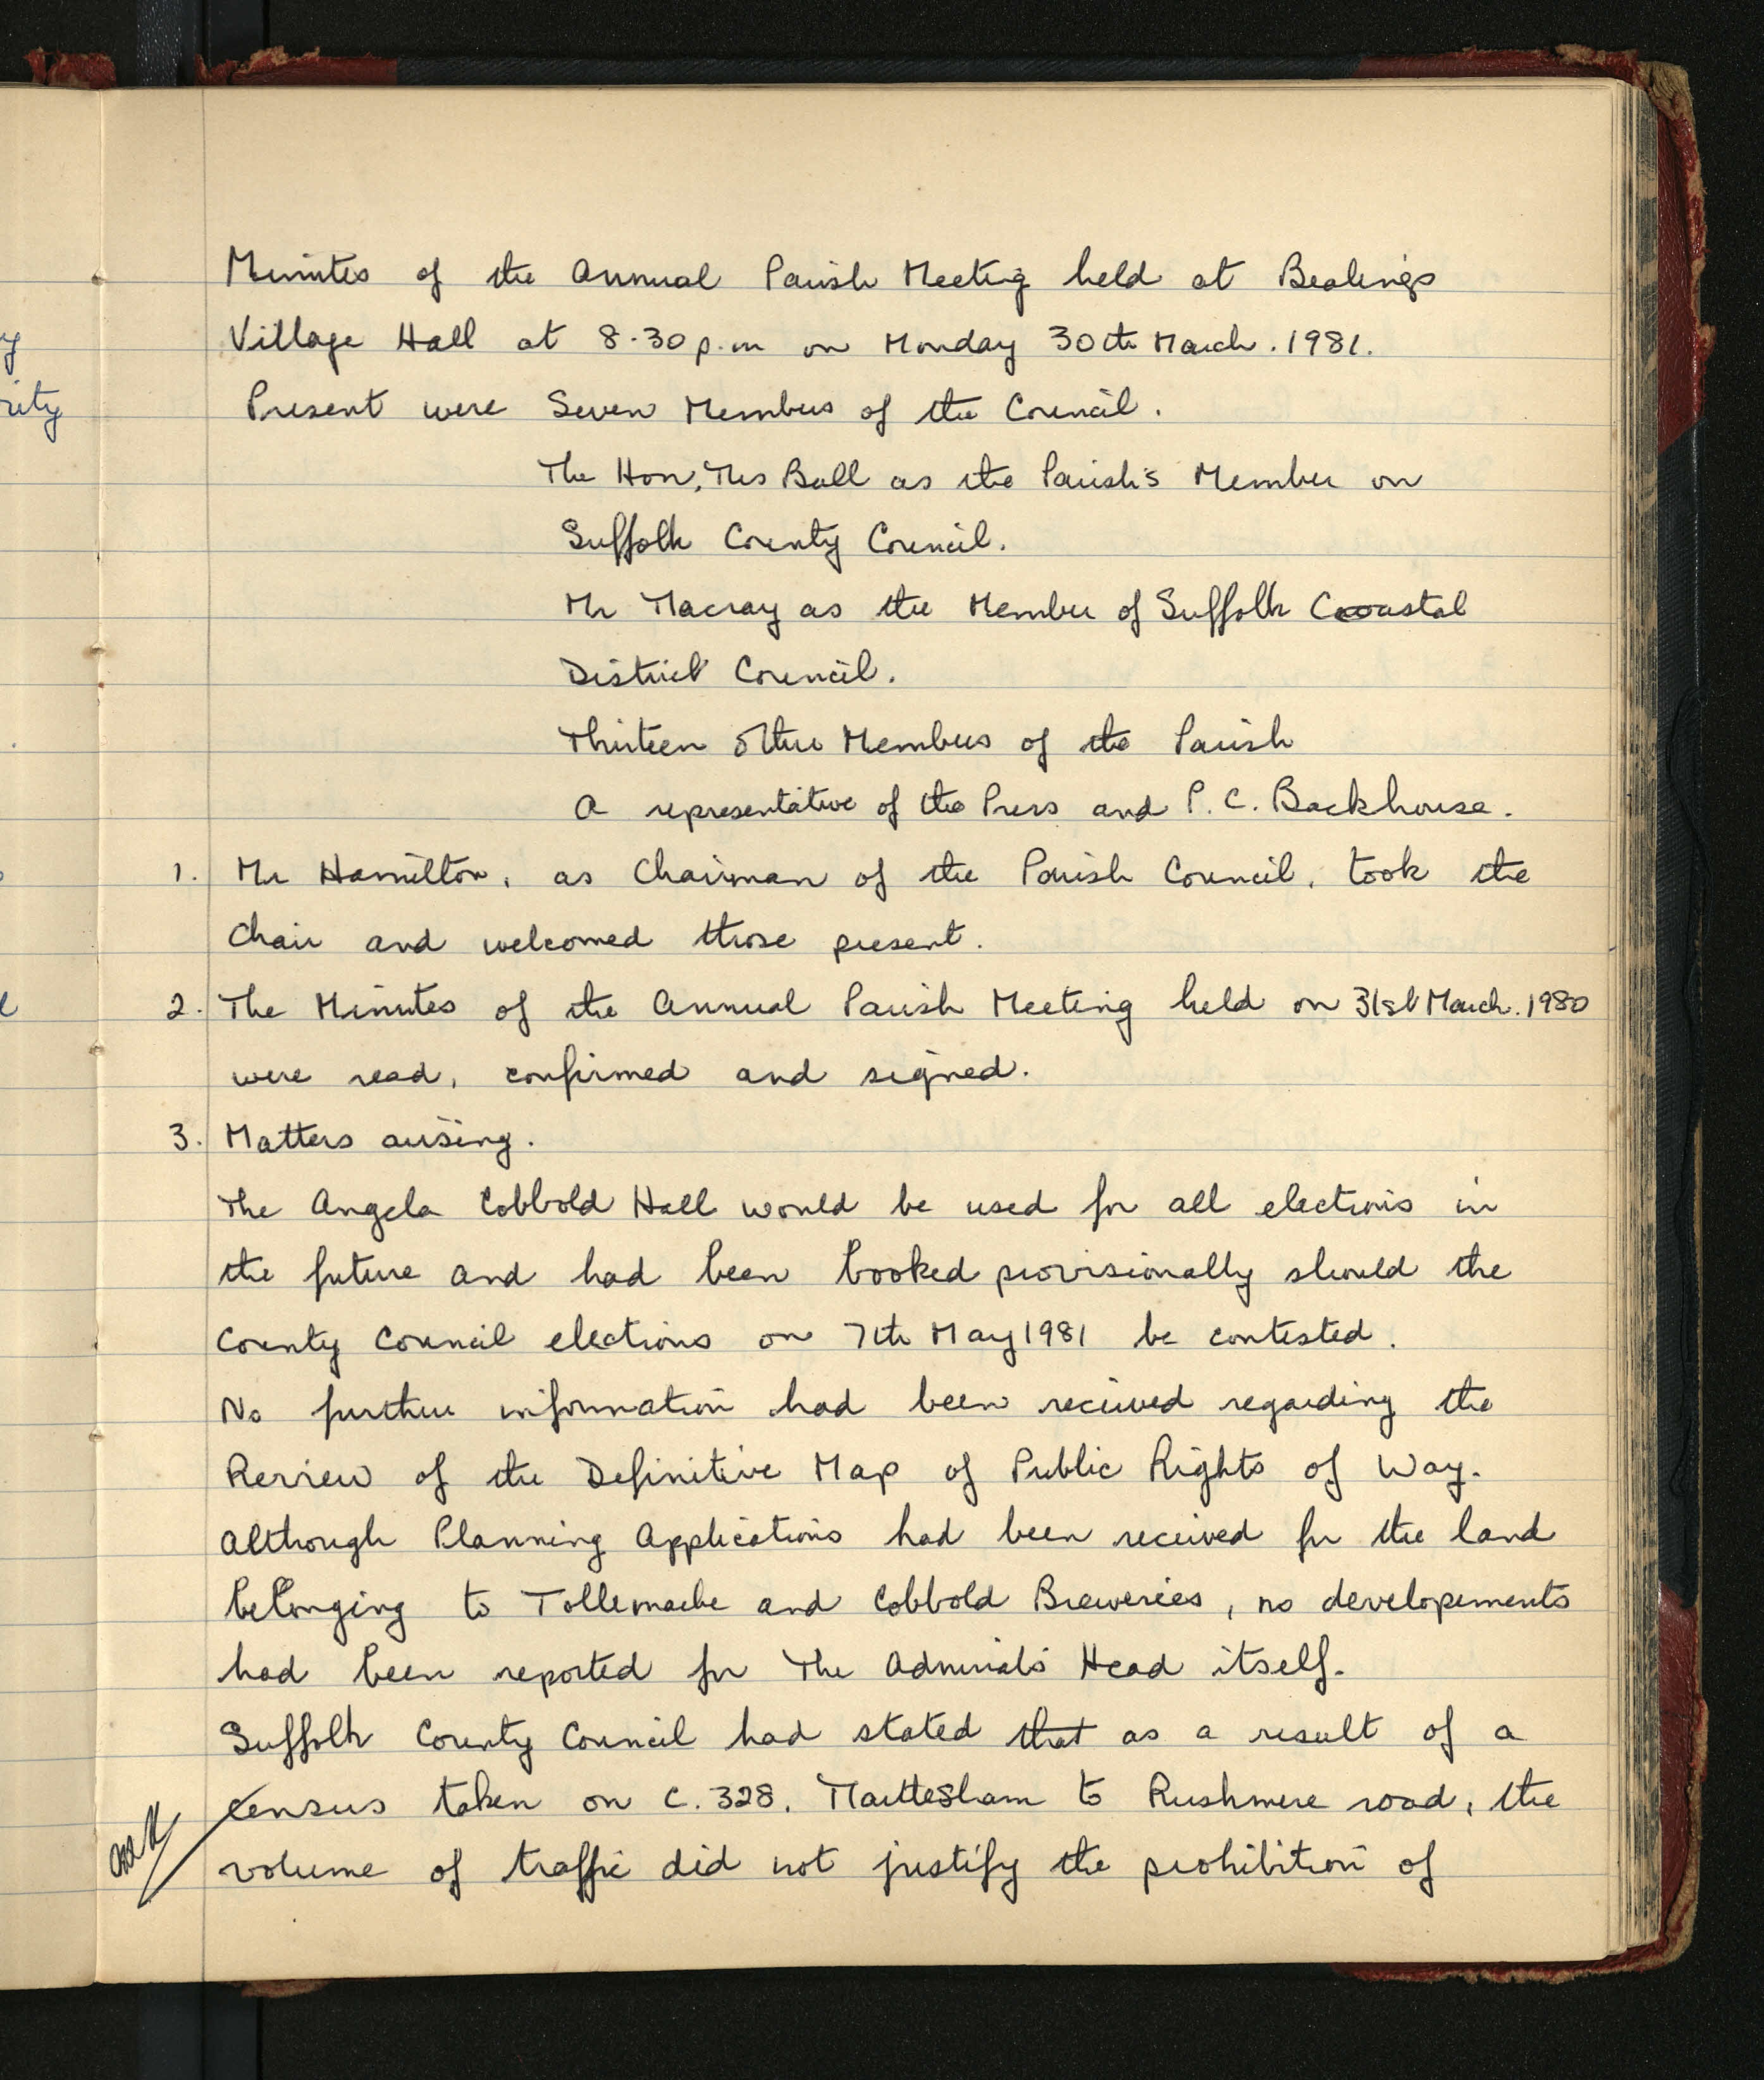 y
rity
Minutes of the Annual Parish Meeting held at Bealings
Village Hall at 8.30 p.m on Monday 30th March. 1981.
Present were Seven Members of the Council.
The Hon, Mrs Ball as the Parish's Member on
Suffolk County Council.
Mr Macray as the Member of Suffolk Coastal
District Council.
Thirteen Other Members of the Parish
A representative of the Press and P.C. Backhouse.
1. Mr Hamilton, as Chairman of the Parish Council, took the
Chair and welcomed those present.
2. The Minutes of the Annual Parish Meeting held on 31st March. 1980
were read, confirmed and signed.
3. Matters arising.
The Angela Cobbold Hall would be used for all elections in
the future and had been booked provisionally should the
County Council elections on 7th May 1981 be contested.
No further information had been received regarding the
Review of the Definitive Map of Public Rights of Way.
Although Planning Applications had been received for the land
belonging to Tollemache and Cobbold Breweries, no developements
had been reported for The Admirals Head itself.
Suffolk County Council had stated that as a result of a
census taken on C.328, Martlesham to Rushmere road, the
volume of traffic did not justify the prohibition of